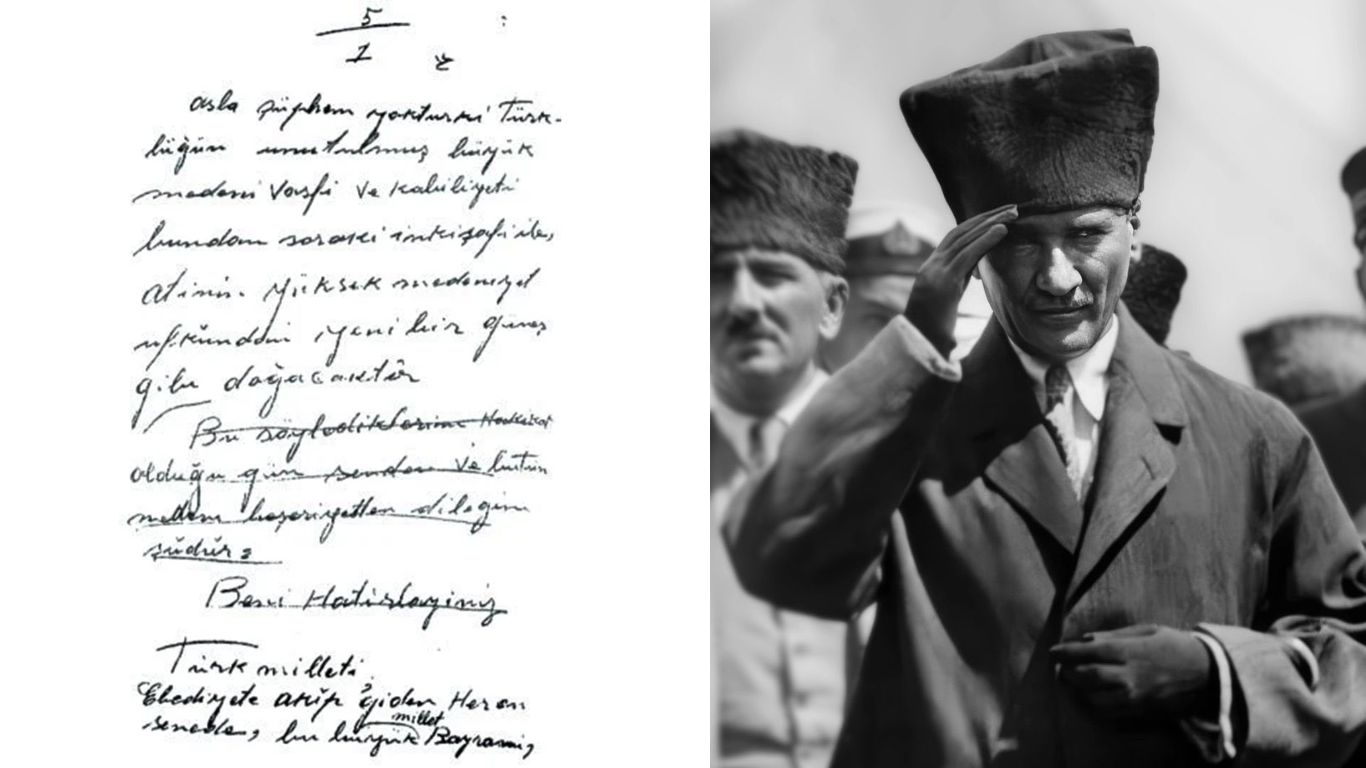 5
1
asla şüphem yokturki Türk-
lüğün unutulmuş büyük
medeni vasfi ve kabiliyeti
bundan sonraki inkişafi ile,
atinin yüksek medeniyet
ufkundan yeni bir güneş
gibi doğacaktır
Bu söylediklerim Hakikat
olduğu gün senden ve bütün
medeni beşeriyetten dileğim
şudur:
Beni Hatirlayiniz
Türk milleti
Ebediyete akıp giden Her on
millet
senede, bu büyük Bayrami,